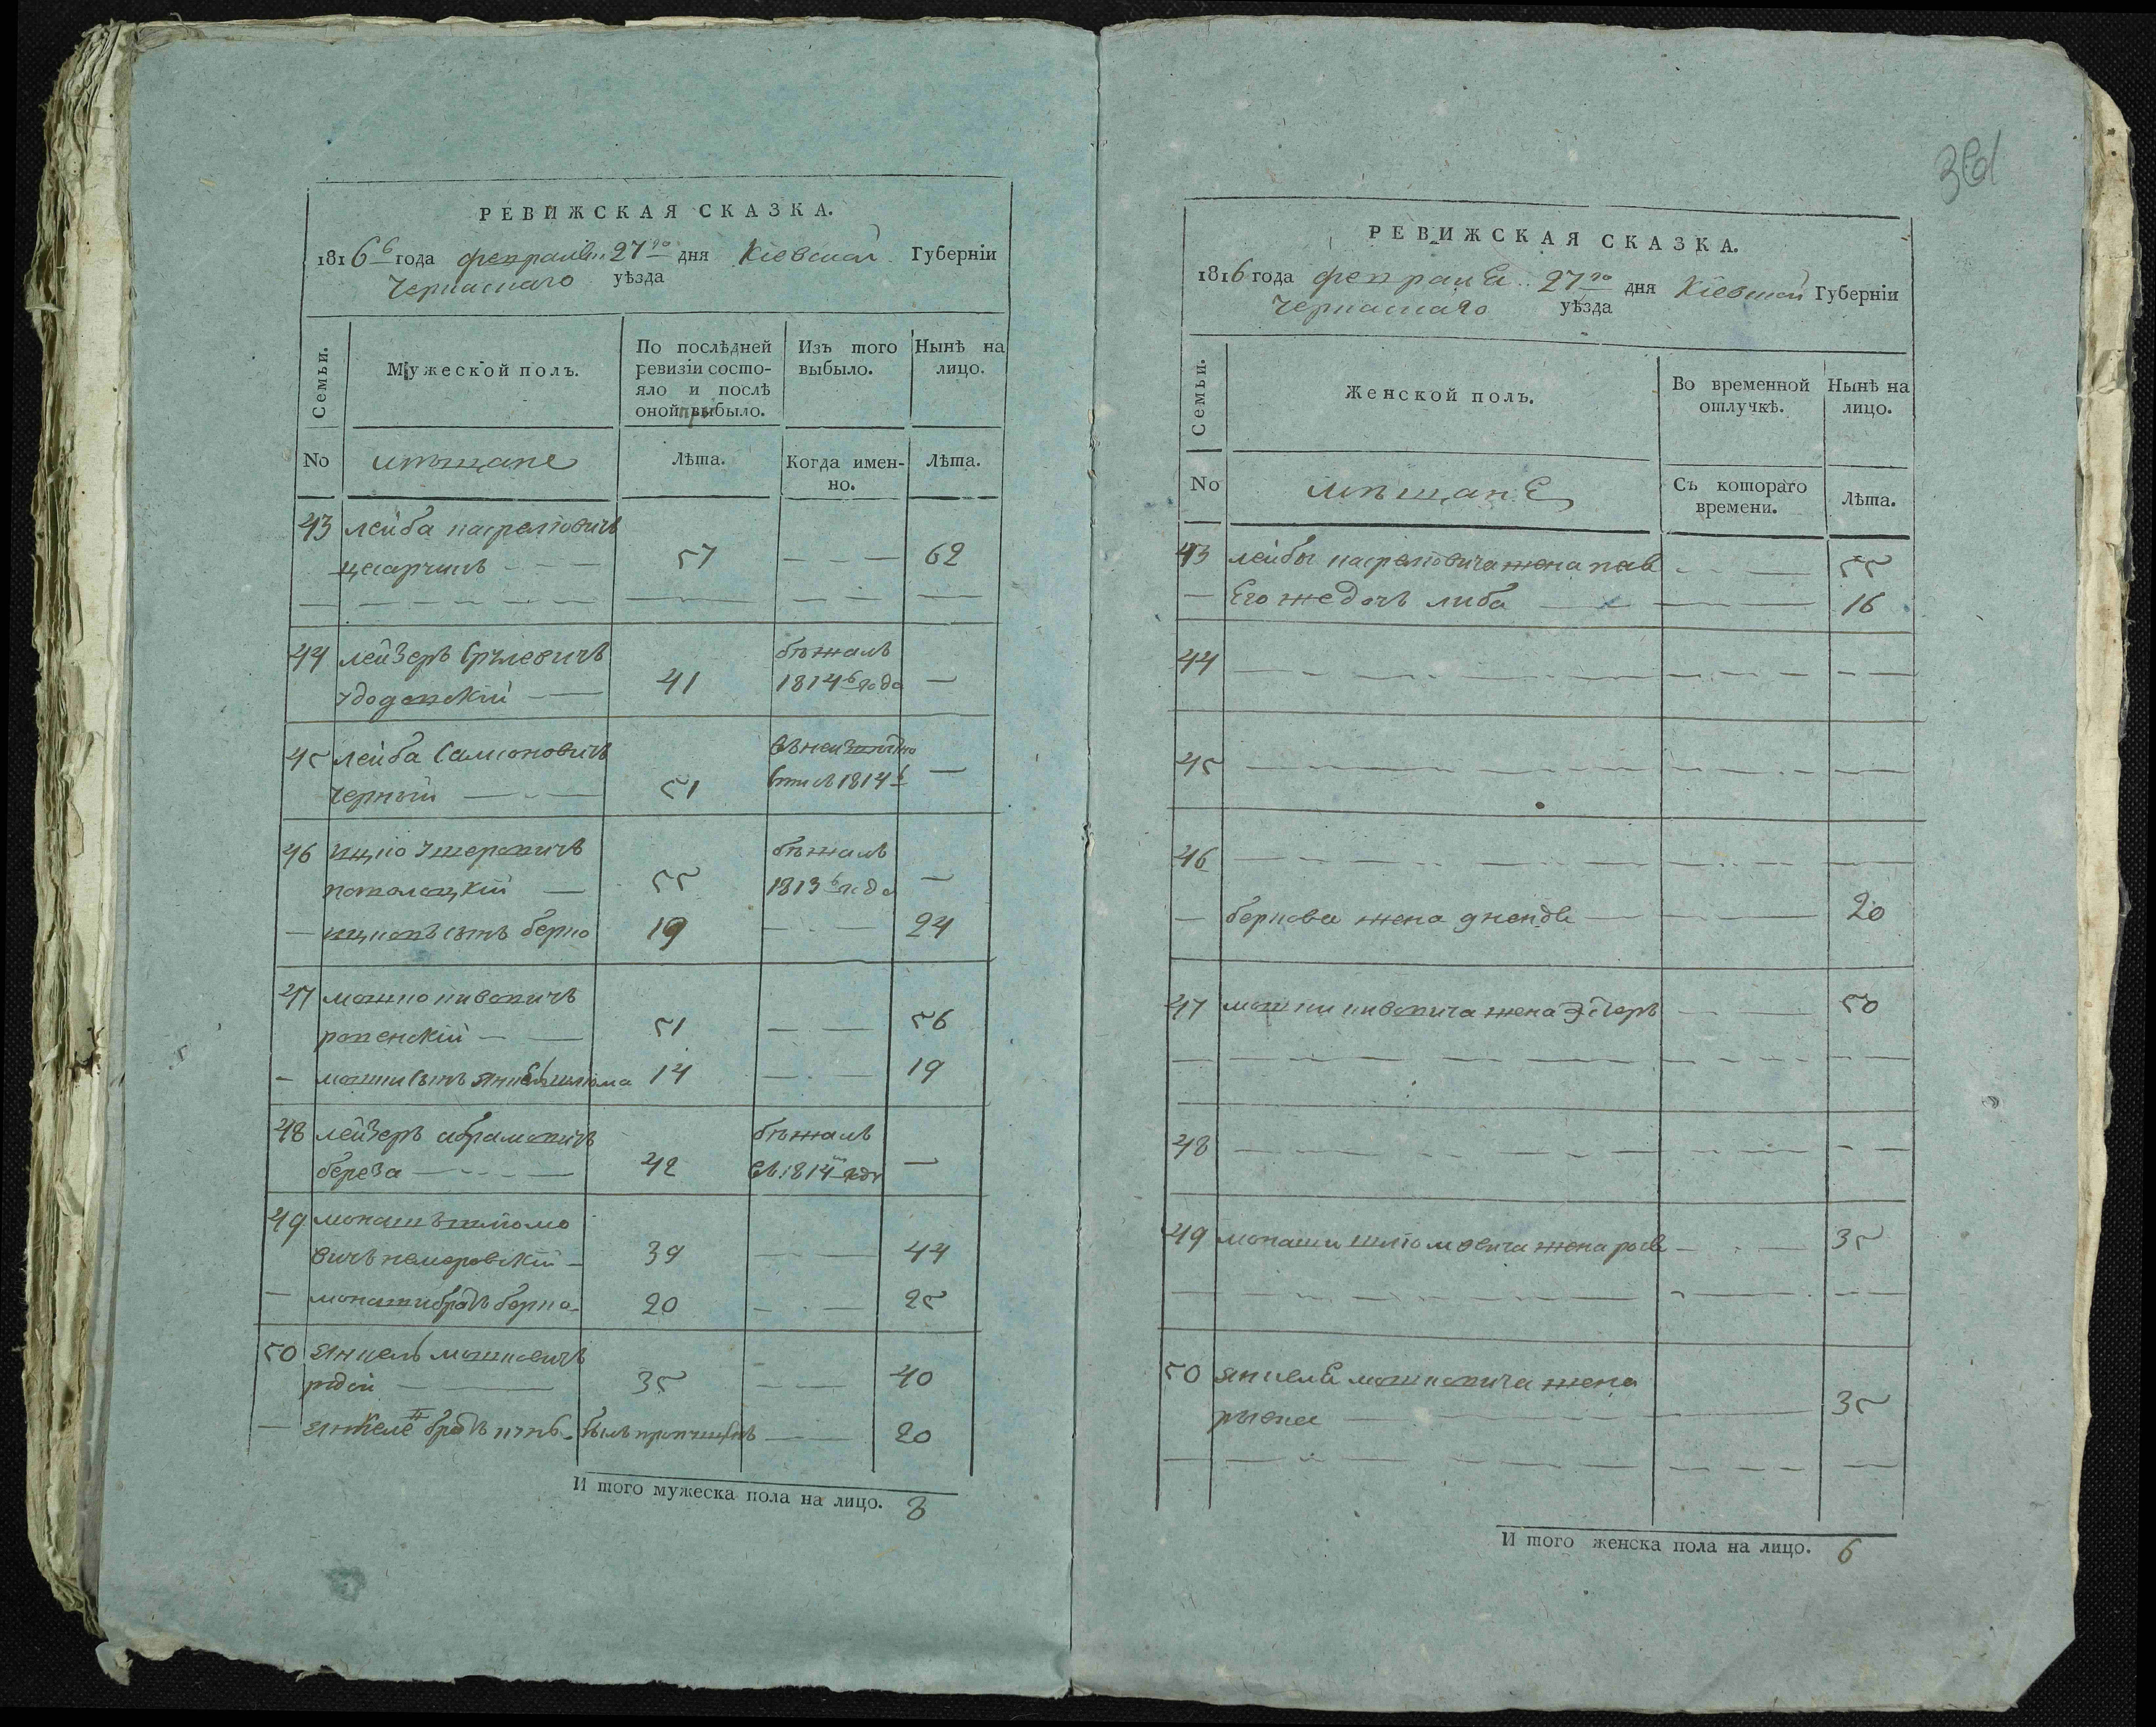 РЕВИЖСКАЯ СКАЗКА.
1816 года февраля 27го дня Кіевской Губерніи
Черкаскаго уѣзда
Семьи.
Мужеской полъ.
По послѣдней ревизіи состояло и послѣ оной прибыло.
Изъ того выбыло.
Нынѣ на лицо.
No
мѣщане
Лѣта.
Когда именно.
Лѣта.
43 лейба
57 — — — 62
44 лейзеръ Срулевичъ бѣжалъ
41 1814 года —
45 лейба Самсоновичъ
черный — 51 1814 —
46 ицко бѣжалъ
55 1813 года —
— ицковъ сынъ берко 19 — 24
47 мошко
51 — — 56
— мошки сынъ янкель шлиома 14 — 19
48 лейзеръ абрамовичъ бѣжалъ
береза — 42 въ 1814 году —
49 монашъ шлиомо
вичъ немеровскій — 39 — 44
— монаши братъ берко 20 — 25
50 янкель мошковичъ
рюдой — 35 — 40
— янкеля братъ былъ пропущенъ — 20
И того мужеска пола на лицо. 8
3ed
РЕВИЖСКАЯ СКАЗКА.
1816 года февраля 27го дня Кіевской Губерніи
Черкаскаго уѣзда
Семьи.
Женской полъ.
Во временной отлучкѣ.
Нынѣ на лицо.
No
мѣщане
Съ котораго времени.
Лѣта.
43 лейбы жена — 55
— Его же дочь либа — 16
44 — — —
45 — — —
46 — — —
— беркова жена — 20
47 мошки жена Эстеръ — 50
48 — — —
49 монаши шлиомовича жена — 35
50 янкеля мошковича жена
— 35
И того женска пола на лицо. 6